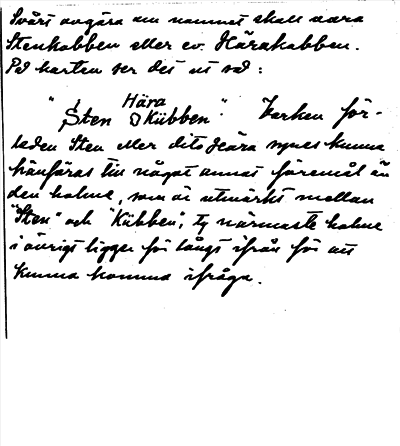 Svårt avgöra om namnet skall vara
Stenkobben eller ev. Härakobben.
På kartan ser det ut så:
Hära
"Sten Kübben" Varken för-
leden Sten eller dito Hära synes kunna
hänföras till något annat föremål än
den holme, som är utmärkt mellan
"Sten" och "Kübben", ty närmaste holme
i övrigt ligger för långt ifrån för att
kunna komma ifråga.